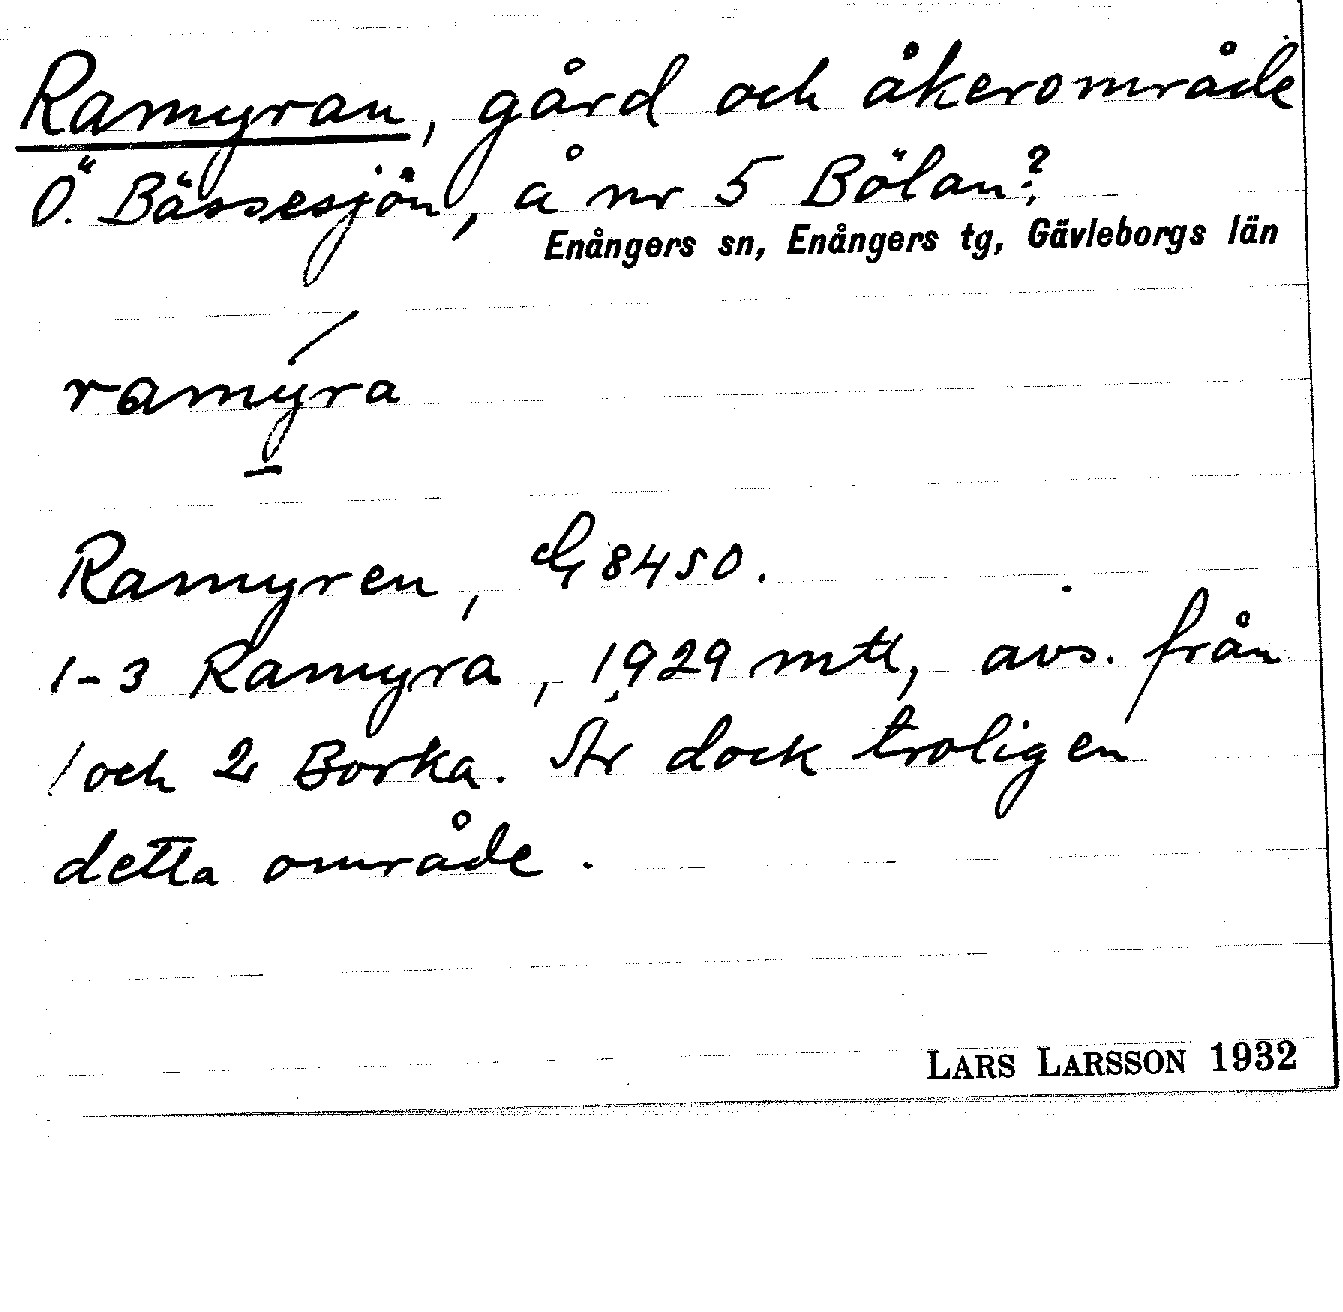 Ramyran, gård och åkerområde
Ö. Bässesjön, å nr 5 Bölan?
Enångers sn, Enångers tg, Gävleborgs län
ramýra
Ramyren, G 8450.
1-3 Ramyra, 1929 mtl, avs. från
1 och 2 Borka. Är dock troligen
detta område.
LARS LARSSON 1932